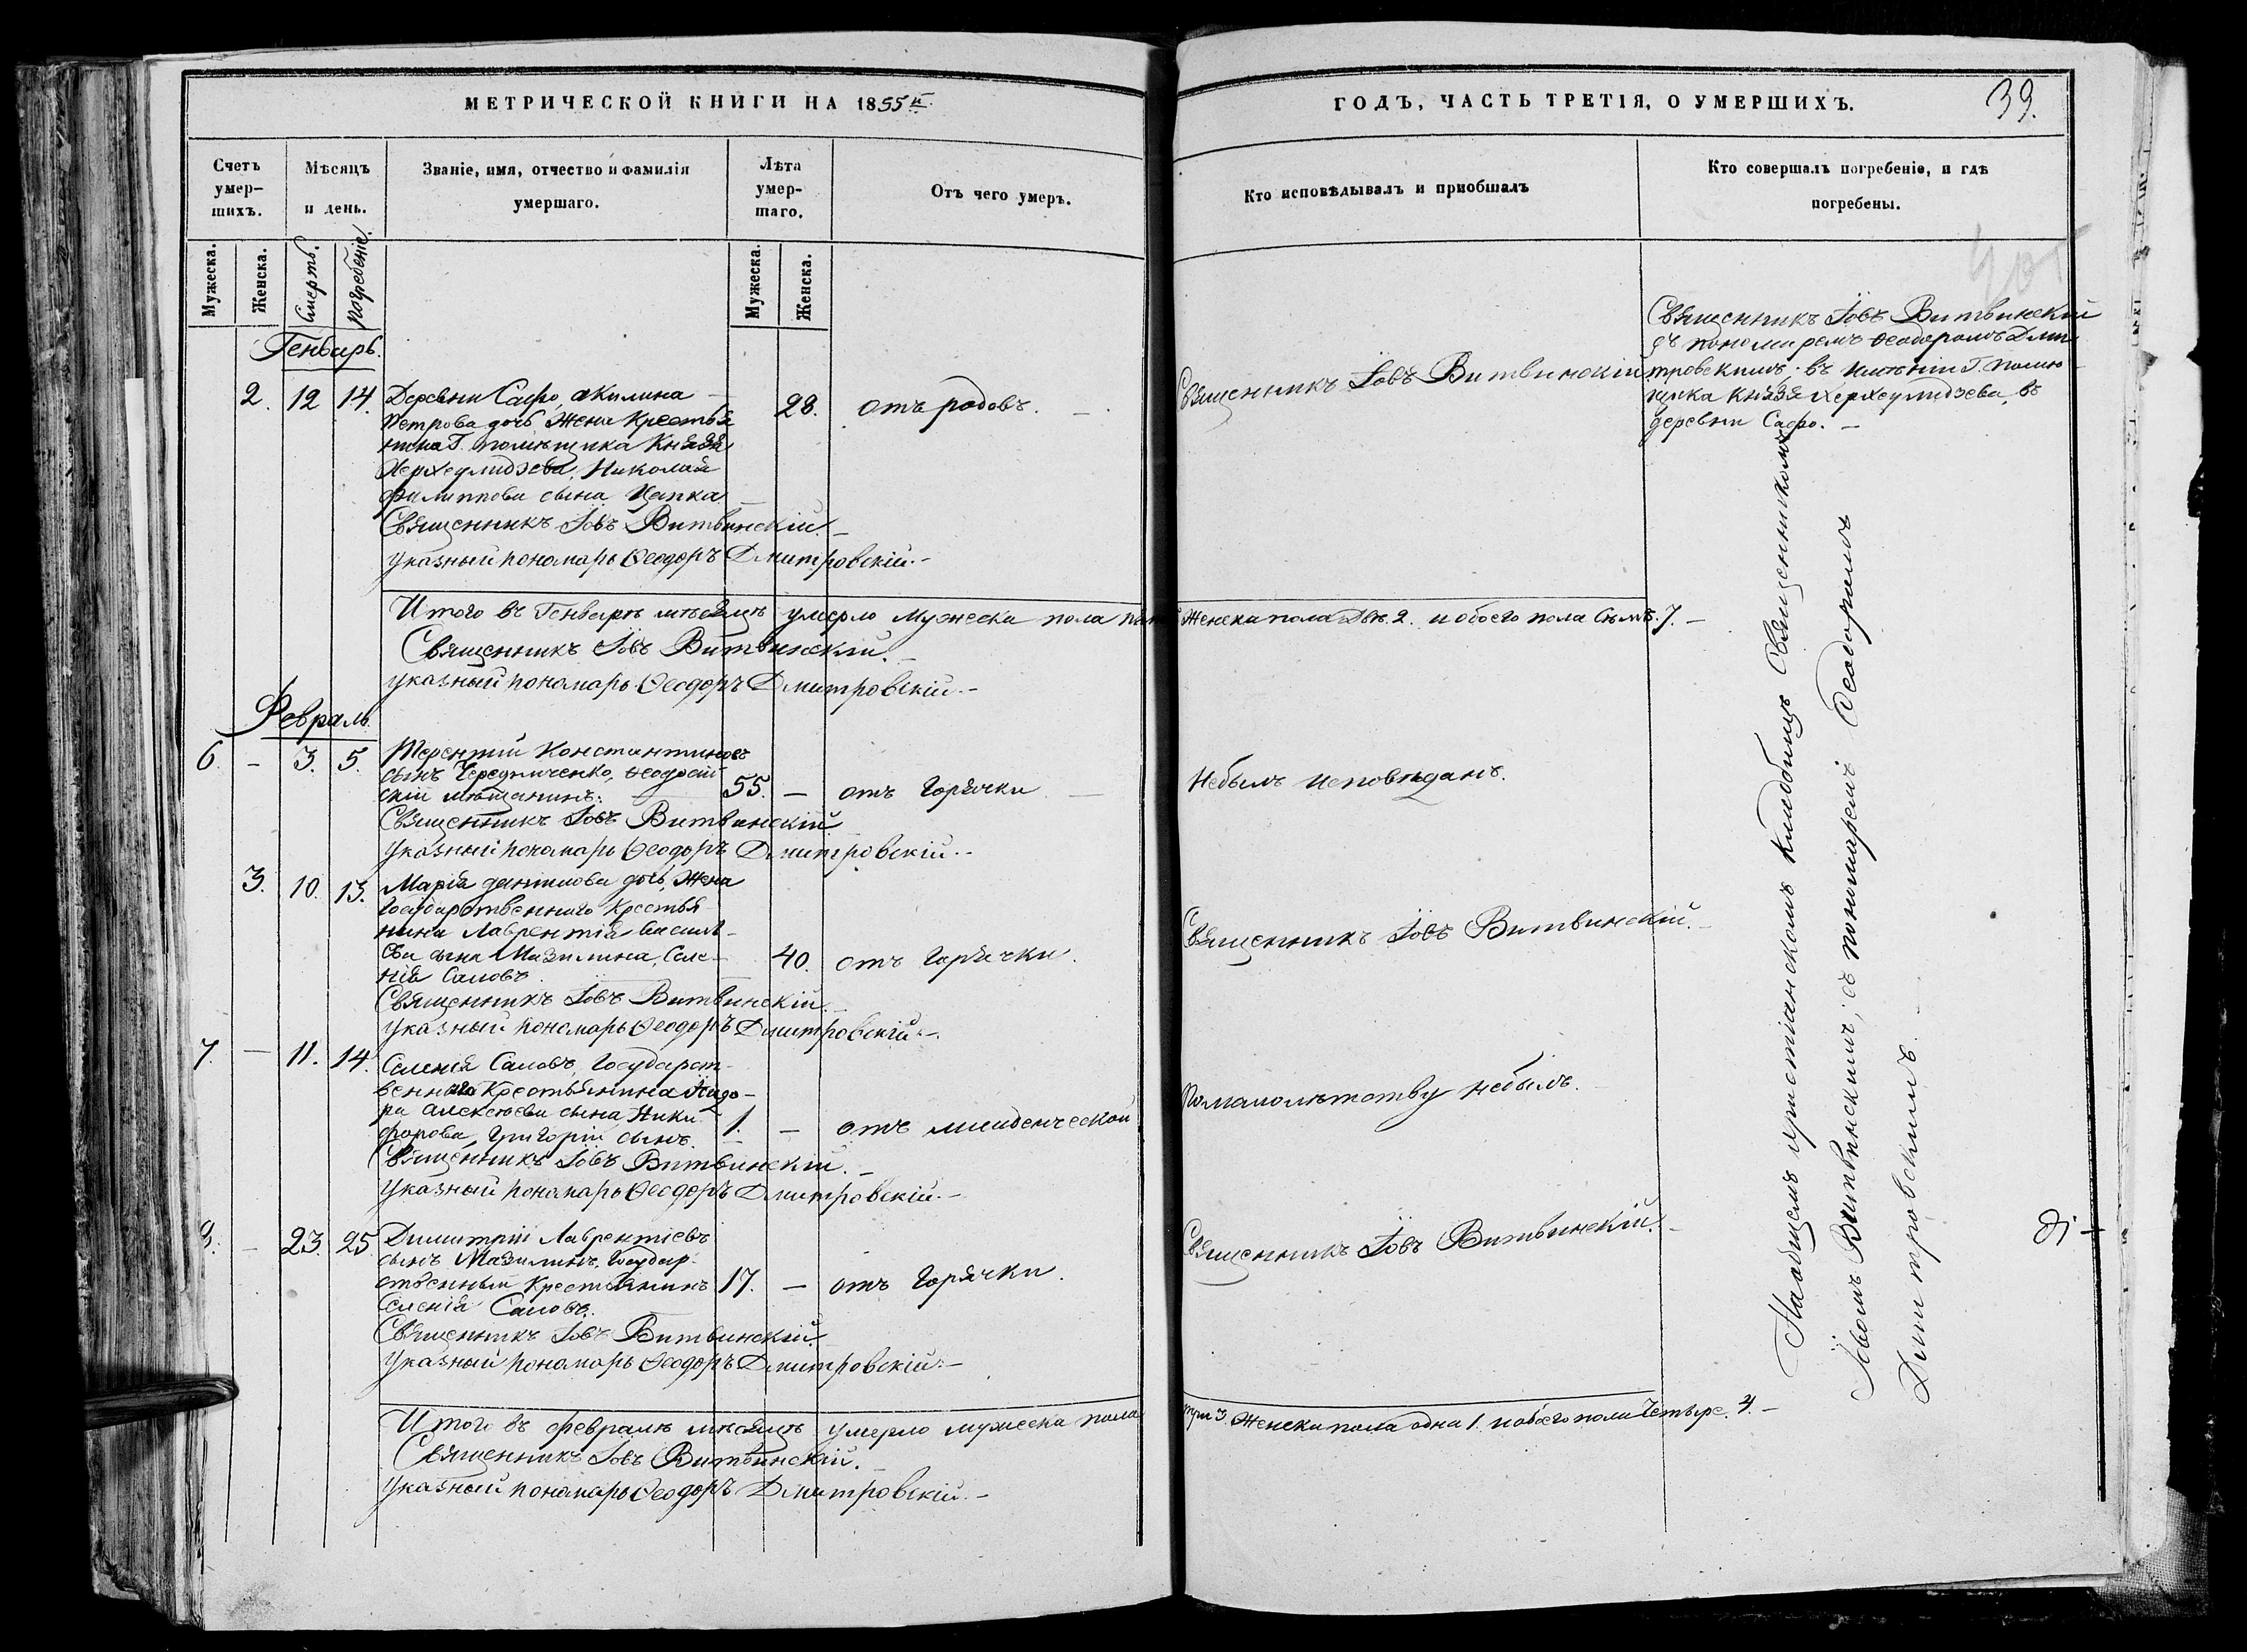 МЕТРИЧЕСКОЙ КНИГИ НА 1855й
ГОДЪ, ЧАСТЬ ТРЕТІЯ, О УМЕРШИХЪ.
39.
Счетъ умер-шихъ.
Мѣсяцъ и день.
Званіе, имя, отчество и фамилія умершаго.
Лѣта умер-шаго.
Отъ чего умеръ.
Кто исповѣдывалъ и пріобщалъ
Кто совершалъ погребеніе, и гдѣ погребены.
Мужеска.
Женска.
Смерть.
Погребеніе.
Мужеска.
Женска.
Генварь.
2. 12 14. Деревни Сафо, Акилина
Петрова дочь, Жена Крестья
нина Г. помѣщика Князя
Херхеулидзева, Николая
Филиппова сына Цапка
28. отъ родовъ.
Священникъ Іовъ Витвинскій.
Священникъ Іовъ Витвинскій
съ пономаремъ Ѳеодоромъ Дми
тровскимъ въ имѣніи Г. помѣ
щика Князя Херхеулидзева, въ
деревни Сафо.
Священникъ Іовъ Витвинскій.
Указный пономарь Ѳеодоръ Дмитровскій.
Итого въ Генварѣ мѣсяцѣ умерло Мужеска пола
Женска пола Двѣ 2. и обоего пола Сѣмъ. 7.
Священникъ Іовъ Витвинскій.
указный пономарь Ѳеодоръ Дмитровскій.
Февраль.
6. - 3. 5. Терентій Константиновъ
сынъ Чередниченко, Ѳеодосій
скій мѣщанинъ.
55. - отъ Горячки
Небылъ исповѣданъ.
Священникъ Іовъ Витвинскій
Указный пономарь Ѳеодоръ Дмитровскій.
3. 10. 13. Марія Данилова дочь, Жена
Государственнаго Крестья
нина Лаврентія Василь
ева сына Мазилина, Селе
нія Саловъ
40. отъ Горячки.
Священникъ Іовъ Витвинскій.
Священникъ Іовъ Витвинскій.
Указный пономарь Ѳеодоръ Дмитровскій.
7. - 11. 14. Селенія Саловъ, Государст
веннаго Крестьянина Исидо
ра Алексѣева сына Ники
форова, Григорій сынъ.
1. - отъ младенческой
По малолѣтству небылъ.
Священникъ Іовъ Витвинскій.
Указный пономарь Ѳеодоръ Дмитровскій.
8. - 23. 25. Димитрій Лаврентіевъ
сынъ Мазилинъ, Государ
ственный Крестьянинъ
Селенія Саловъ.
17. - отъ Горячки.
Священникъ Іовъ Витвинскій.
Священникъ Іовъ Витвинскій.
Указный пономарь Ѳеодоръ Дмитровскій.
Итого въ Февралѣ мѣсяцѣ умерло мужеска пола
три 3. Женска пола одна 1. и обоего пола Четыре. 4.
Священникъ Іовъ Витвинскій.
Указный пономарь Ѳеодоръ Дмитровскій.
На общемъ христіанскомъ кладбищѣ Священникомъ
Іовомъ Витвинскимъ, съ пономаремъ Ѳеодоромъ
Дмитровскимъ.